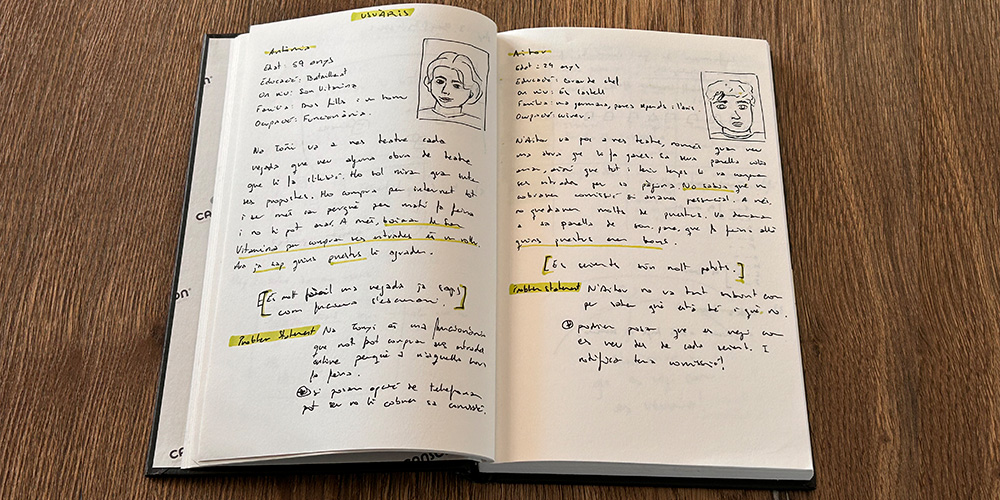 USUARIS
Antònia
Edat: 59 anys
Educació: Batxillerat
On viu: Son Vitamina
Família: Dos fills i un home
Ocupació: Funcionària.
Na Toñi va a nes teatre cada
vegada que veu alguna obra de teatre
que li fa il·lusió. Ho sol mirar quan
ses propostes. Ho compra per internet tot
i ser més car perquè per matí fa feina
i no hi pot anar. A més, baixar de Son
Vitamina per comprar ses entrades és un rotllo.
ja sap quins puestos li agraden.
[És molt fàcil una vegada ja saps
com funciona s'escenari.]
Problem Statement Na Tonyi és una funcionària
que not pot comprar ses entrades
online perquè a n'aquella hora
fa feina.
si posam opció de telefonar
pot ser no li cobren sa comissió.
Aitor
Edat: 29 anys
Educació: Grau de chef
On viu: Es Castell
Família: una germana, pares separats i l'avia.
Ocupació: cuiner.
N'Aitor va poc a nes teatre, només quan veu
una obra que li fa ganes. Sa seva parella volia
anar, així que tot i tenir temps li va comprar
ses entrades per sa pàgina. No sabia que no
cobraven comissió si anaves presencial. A més
no quedaven molts de puestos. Va demanar
a sa parella de sa mare, que fa feina allà
quins puestos eren bons.
[Es seients són molt petits.]
Problem statement N'Aitor no va tant sovint com
per saber què està bé i què no.
podríem posar que es vegi com
es veu des de cada seient. I
notificar tema comissió!